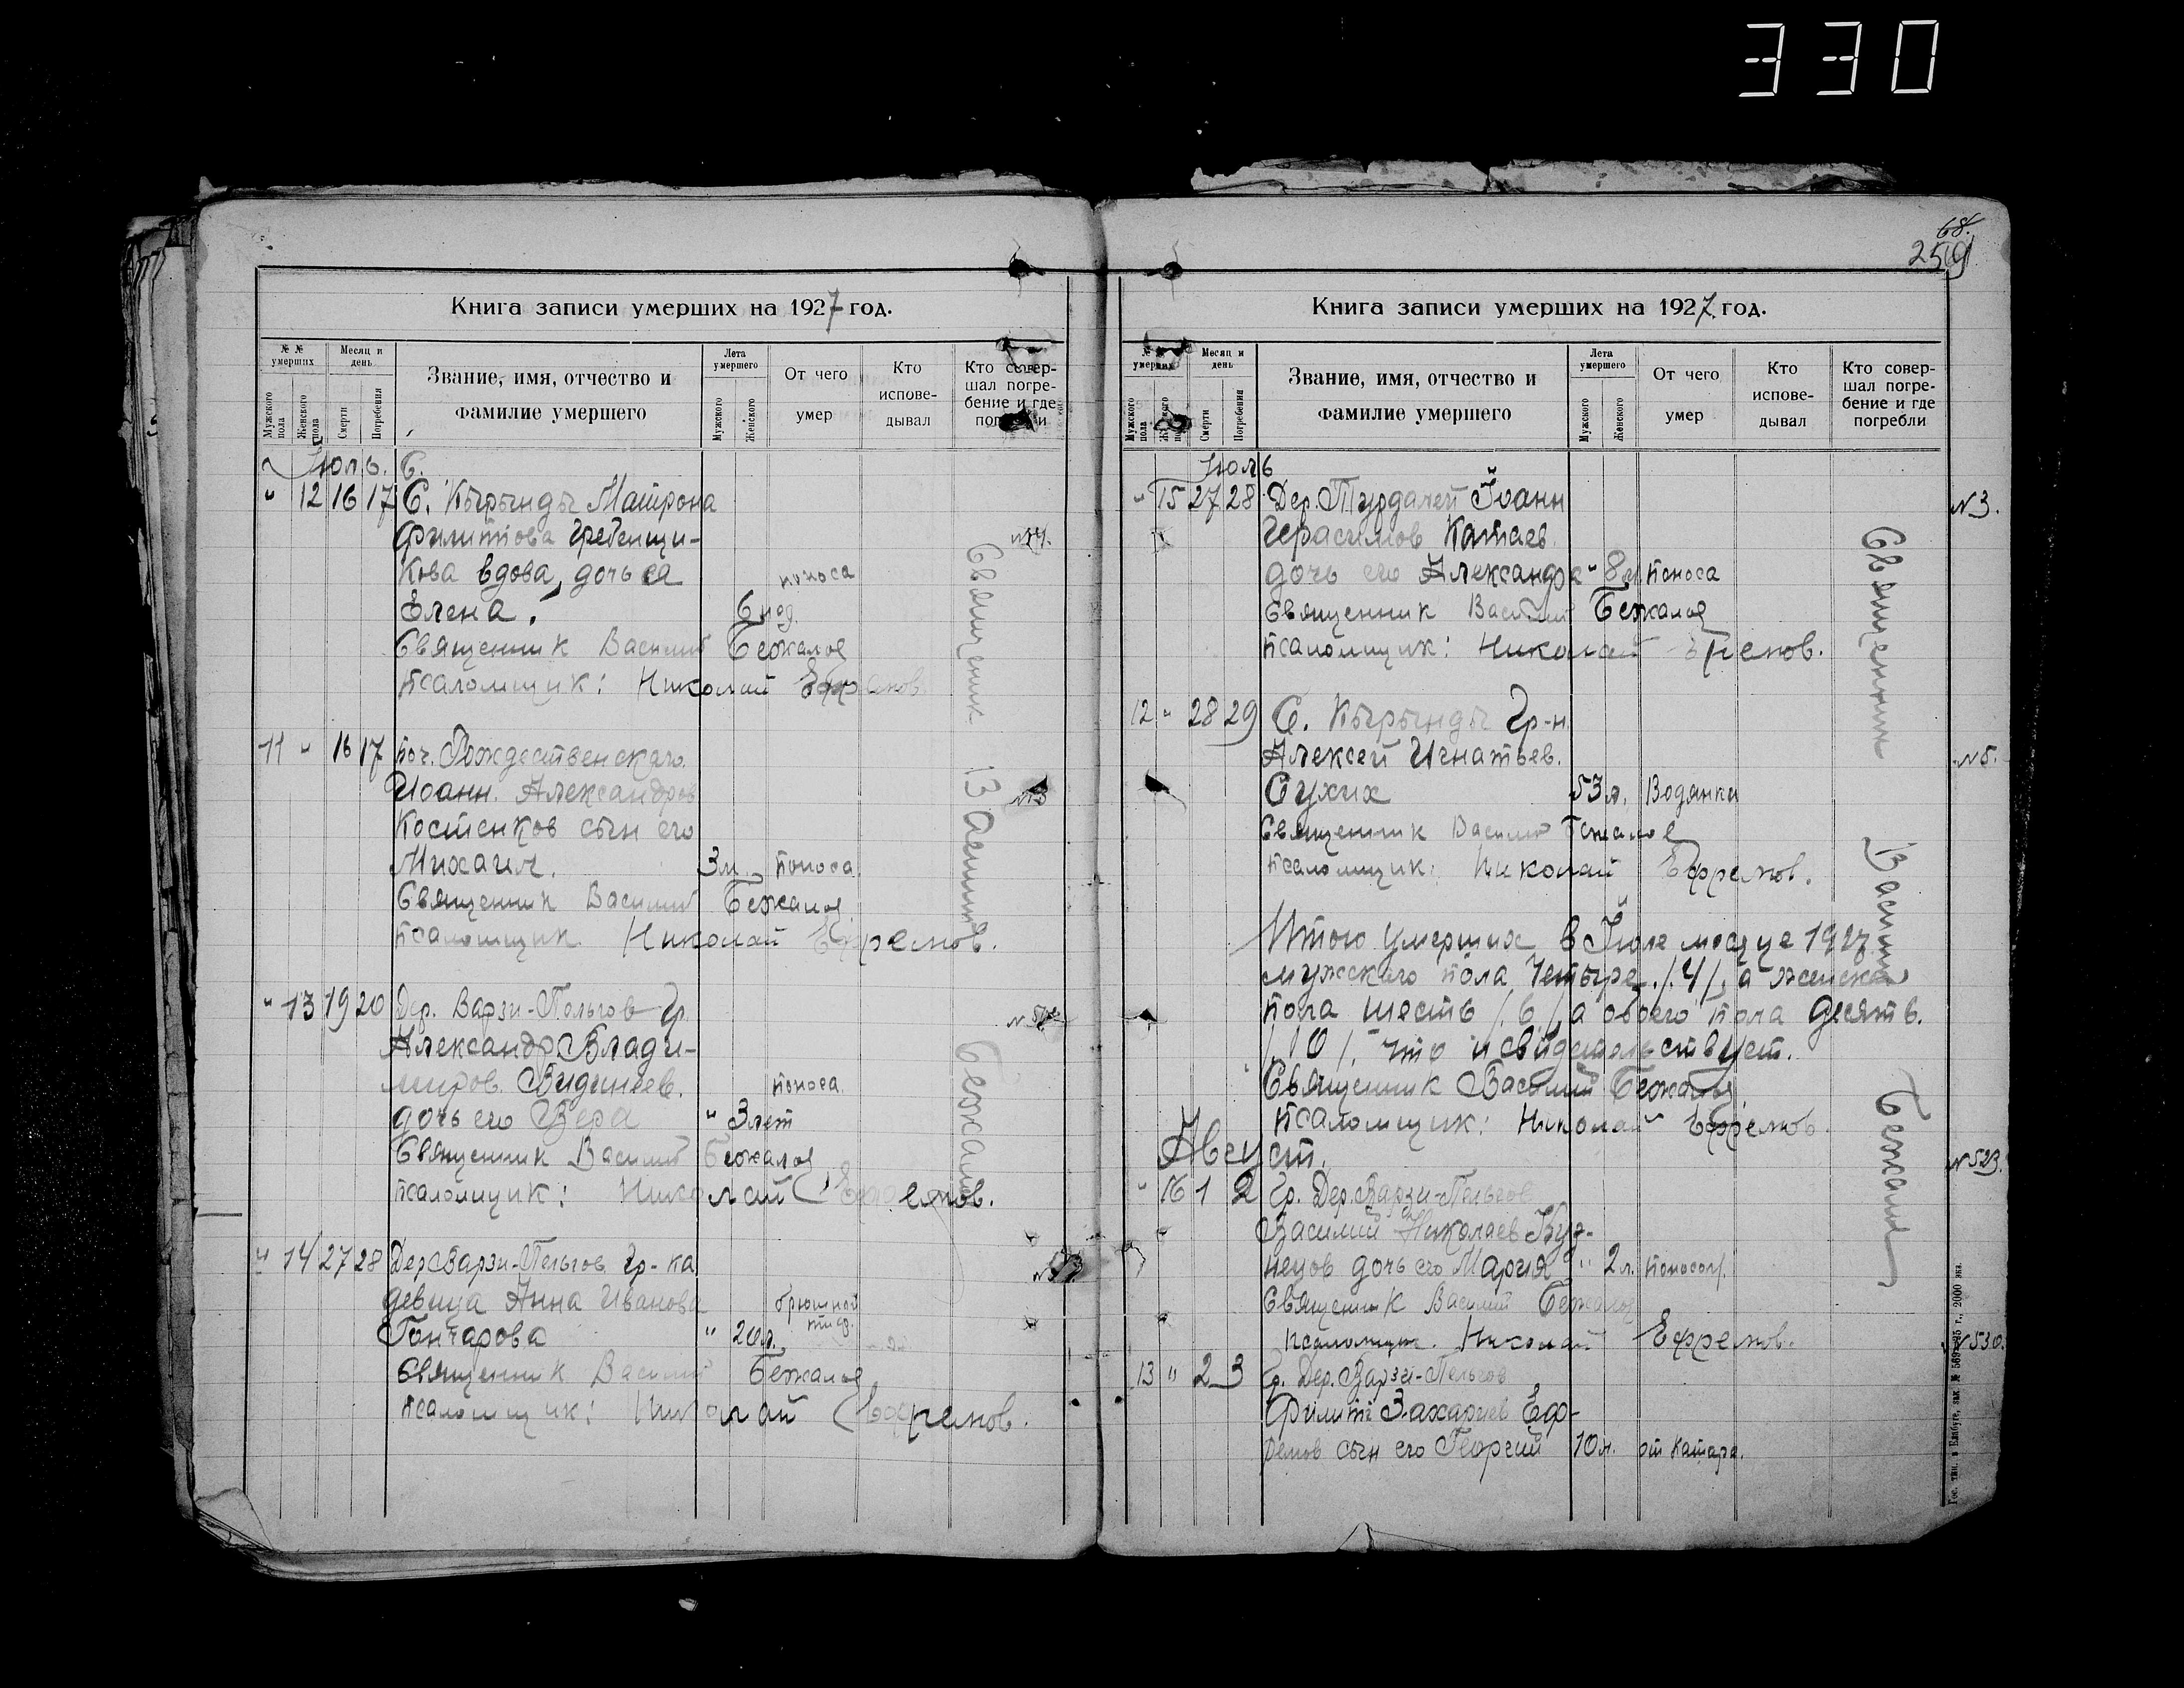 330
68.
259
Книга записи умерших на 1927 год.
№ № умерших
Мужского пола
Женского пола
Месяц и день
Смерти
Погребения
Звание, имя, отчество и фамилие умершего
Лета умершего
Мужского
Женского
От чего умер
Кто исповедывал
Кто совершал погребение и где погребли
Июль. С.
" 12 16 17 С. Кырынды Матрона
Филиппова Гребенщи-
кова вдова, дочь ея
поноса
Елена. 6 нед.
Священник Василий Бежалов
псаломщик: Николай Ефремов.
11 " 16 17 поч. Рождественскаго
Иоанн. Александров
№3
Костенков сын его
Михаил. 3 м. поноса
Священник Василий Бежалов
псаломщик Николай Ефремов.
" 13 19 20 Дер. Варзи-Пельгов гр.
Александр Влади-
миров.
поноса.
дочь его Вера " 3 лет
Священник Василий Бежалов
псаломщик: Николай Ефремов.
" 14 27 28 Дер. Варзи-Пельгов. гр-ка
девица Анна Иванова
брюшной тиф.
Гончарова " 20 л.
Священник Василий Бежалов
псаломщик: Николай Ефремов.
Священник Василий Бежалов
Книга записи умерших на 1927 год.
№ № умерших
Мужского пола
Женского пола
Месяц и день
Смерти
Погребения
Звание, имя, отчество и фамилие умершего
Лета умершего
Мужского
Женского
От чего умер
Кто исповедывал
Кто совершал погребение и где погребли
Июль
" 15 27 28 Дер. Турдалей Иоанн
№3.
Герасимов Катаев.
дочь его Александра " 8 м. поноса
Священник Василий Бежалов
псаломщик: Николай Ефремов.
12 " 28 29 С. Кырынды Гр-н.
Алексей Игнатьев.
№5.
Сухих 53 л. Водянки
Священник Василий Бежалов
псаломщик: Николай Ефремов.
Итого умерших в Июле месяце 1927
мужскаго пола Четыре /4/, а женска
пола шесть /6/ а обоего пола десять.
/10/. Что и свидетельствует.
Священник Василий Бежалов
псаломщик: Николай Ефремов.
Август.
№523.
" 16 1 2 Гр. Дер. Варзи-Пельгов
Василий Николаев Куз-
нецов дочь его Мария " 2 л. поносом.
Священник Василий Бежалов
псаломщик. Николай Ефремов.
№530.
13 " 2 3 Гр. Дер. Варзи-Пельгов
Филипп Захариев Еф-
ремов сын его Георгий 10 л. от катара.
Священник Василий Бежалов
Гос. тип. в Елабуге, зак. 2000 экз.